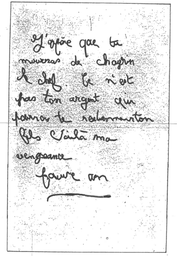 J'espère que tu
mourras de chagrin
le chef Ce n'est
pas ton argent qui
pourra te redonner ton
fils Voilà ma
vengeance
pauvre con